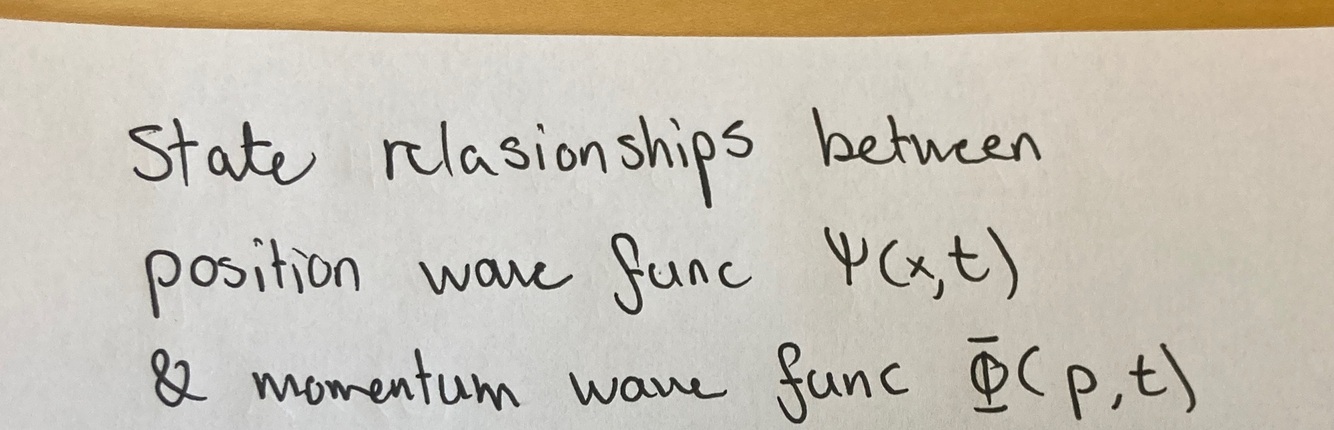 State relasionships between
position wave func Ψ(x,t)
& momentum wave func Φ(p,t)